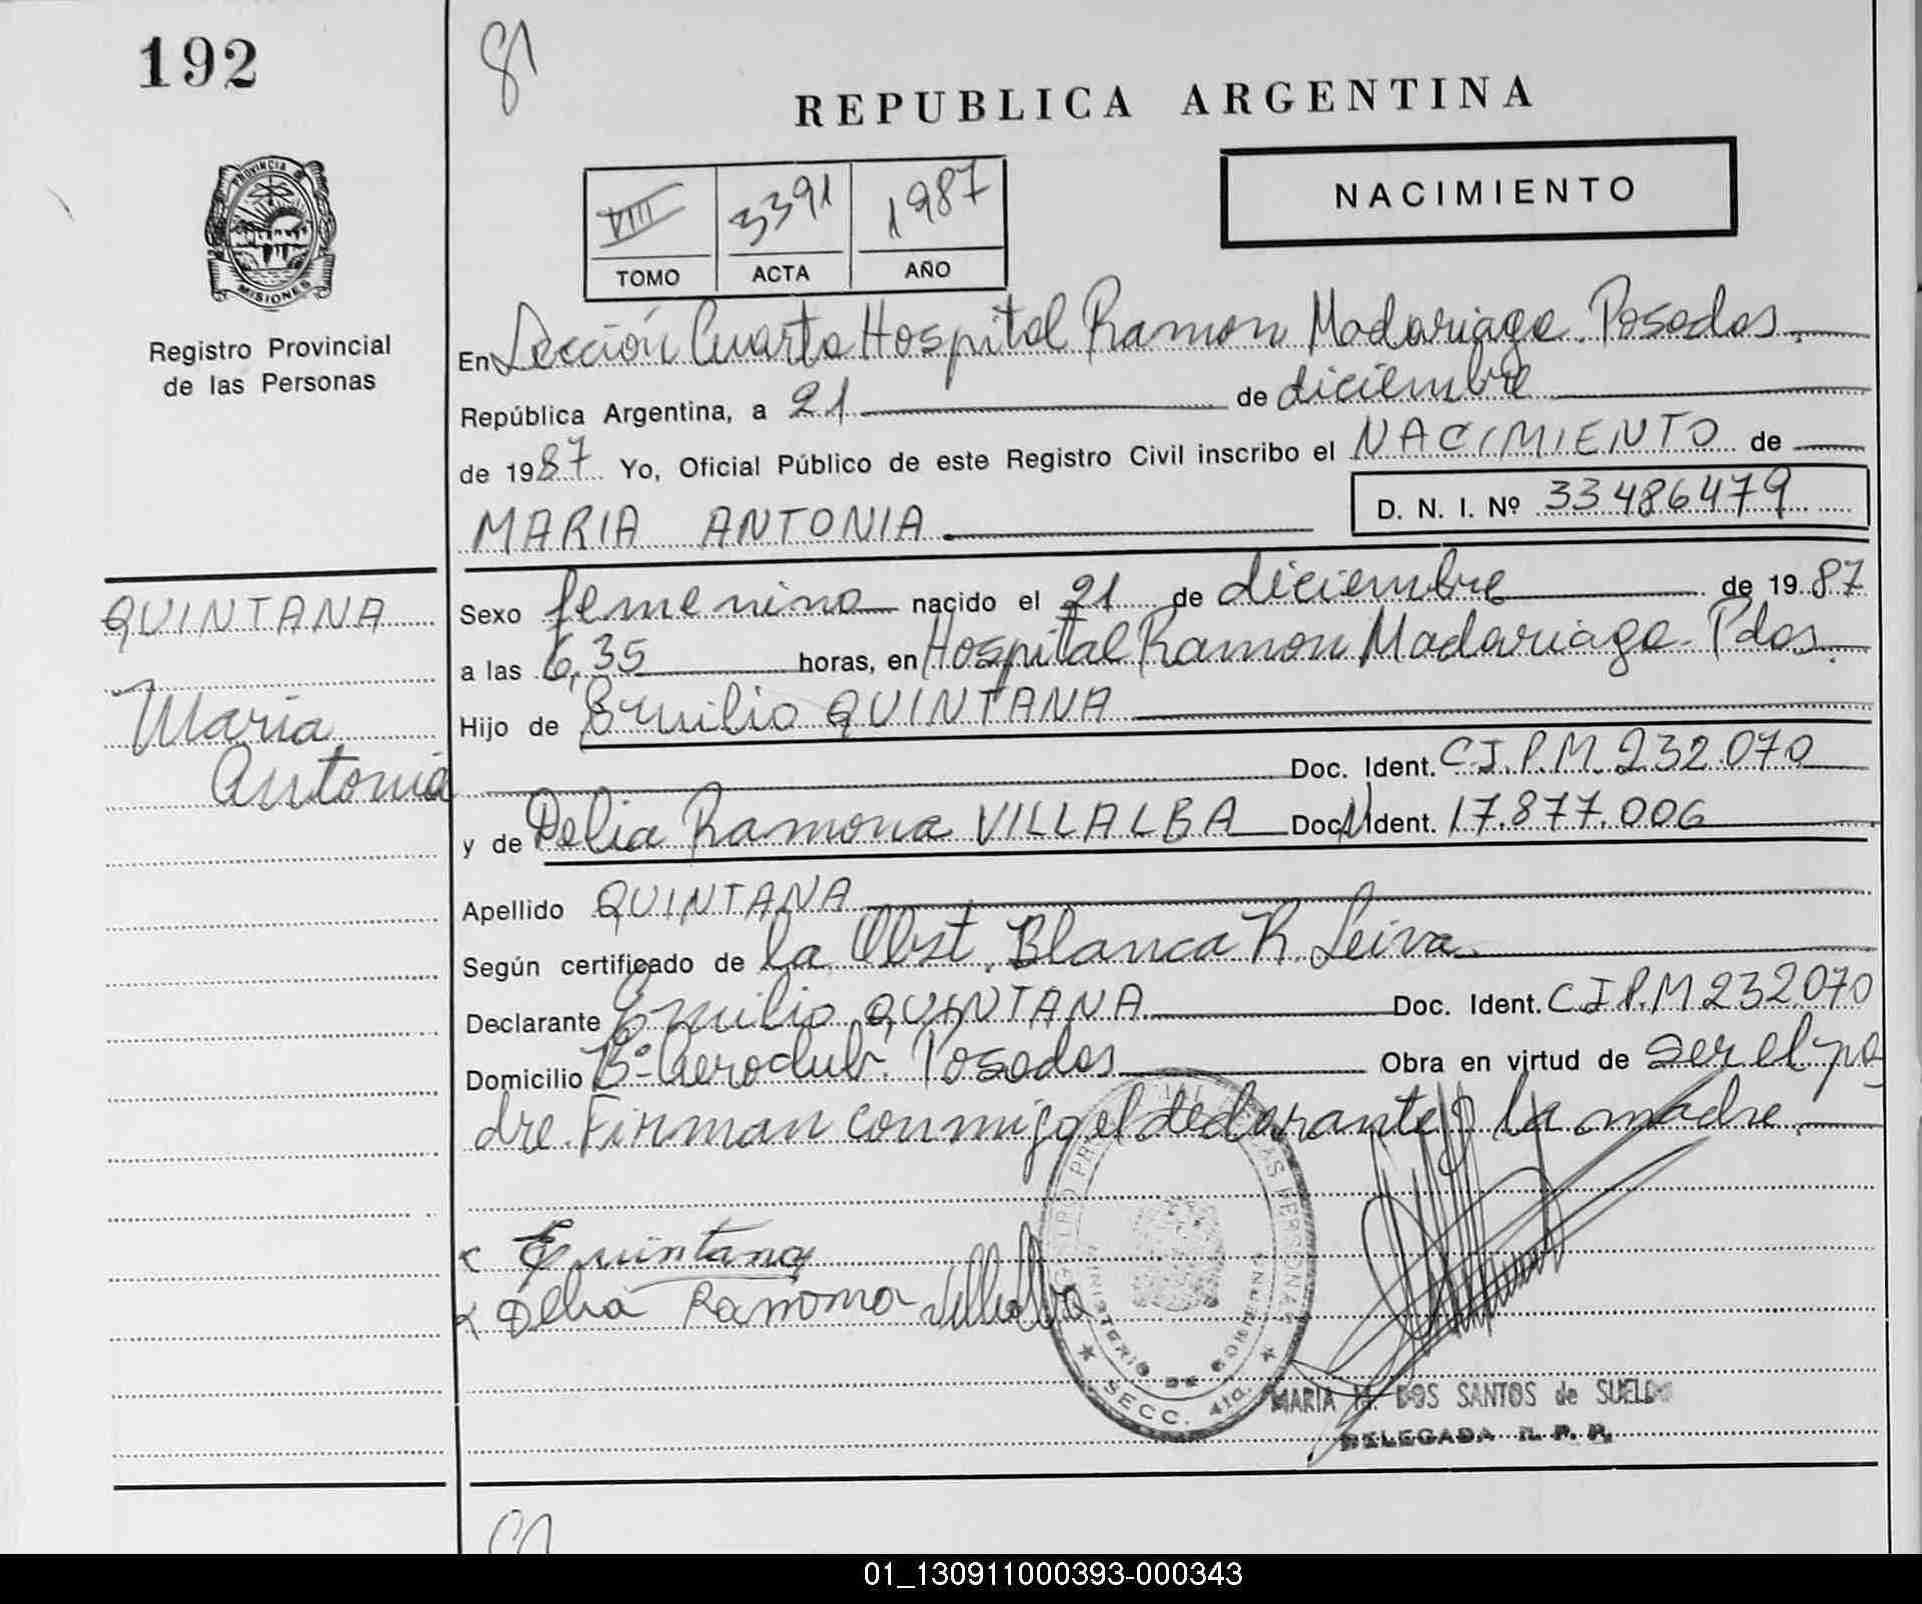 192
81
REPUBLICA ARGENTINA
PROVINCIA D
MISIONES
Registro Provincial
de las Personas
VIII 3391 1987
TOMO ACTA AÑO
NACIMIENTO
En Sección Cuarta Hospital Ramon Madariaga. Posadas.
República Argentina, a 21 de diciembre
de 1987 Yo, Oficial Público de este Registro Civil inscribo el NACIMIENTO de
MARIA ANTONIA D. N. I. Nº 33486479
QUINTANA
Maria
Antonia
Sexo femenino nacido el 21 de diciembre de 1987
a las 6,35 horas, en Hospital Ramon Madariaga. Pdas.
Hijo de Emilio QUINTANA
Doc. Ident. C.I.P.M. 232.070
y de Delia Ramona VILLALBA Doc. Ident. 17.877.006
Apellido QUINTANA
Según certificado de la Obst. Blanca R. Leiva
Declarante Emilio QUINTANA Doc. Ident. C.I.P.M 232070
Domicilio Bº Aeroclub. Posadas Obra en virtud de ser el pa
dre. Firman conmigo el declarante y la madre.
E Quintana
Delia Ramona Villalba
MINISTERIO DE GOBIERNO
SECC. 4ta.
MARIA M. DOS SANTOS de SUELDO
DELEGADA R. P. P.
01_130911000393-000343